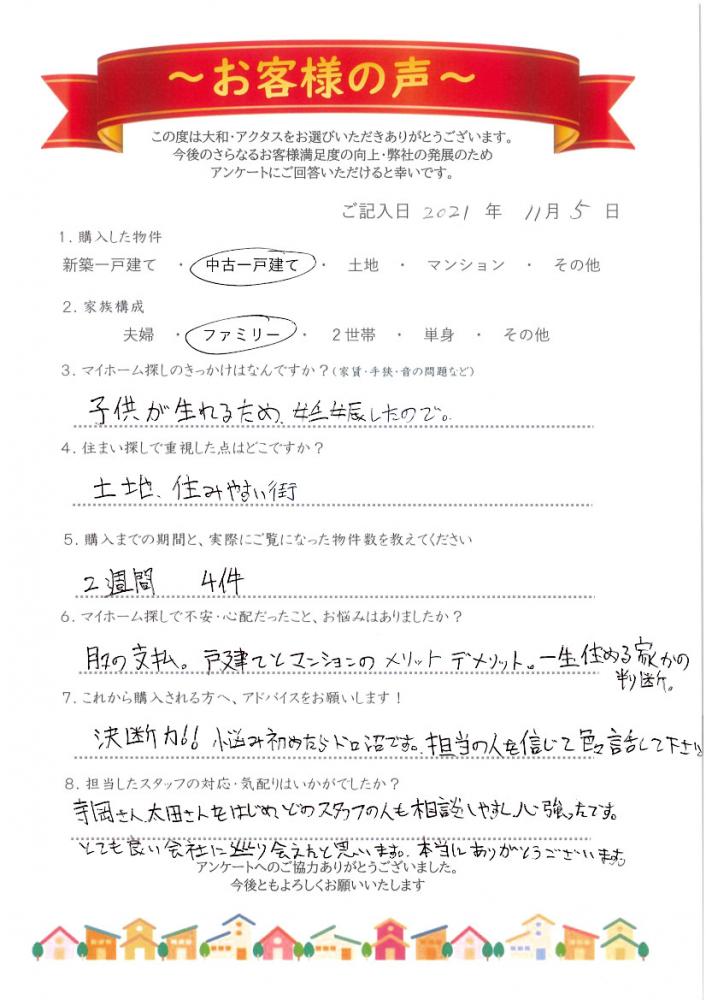 ～お客様の声～
この度は大和・アクタスをお選びいただきありがとうございます。
今後のさらなるお客様満足度の向上・弊社の発展のため
アンケートにご回答いただけると幸いです。
ご記入日 2021 年 11月 5 日
1. 購入した物件
新築一戸建て ・ 中古一戸建て ・ 土地 ・ マンション ・ その他
2. 家族構成
夫婦 ・ ファミリー ・ 2世帯 ・ 単身 ・ その他
3. マイホーム探しのきっかけはなんですか？(家賃・手狭・音の問題など)
子供が生れるため、したので。
4. 住まい探しで重視した点はどこですか？
土地、住みやすい街
5. 購入までの期間と、実際にご覧になった物件数を教えてください
2週間 4件
6. マイホーム探しで不安・心配だったこと、お悩みはありましたか？
月々の支払。戸建てとマンションのメリットデメリット。一生住める家かの
判断。
7. これから購入される方へ、アドバイスをお願いします！
決断力!! 悩み初めたらドロ沼です。担当の人を信じて色々話して下さい
8. 担当したスタッフの対応・気配りはいかがでしたか？
寺岡さん、太田さんをはじめ、どのスタッフの人も相談しやすし心強ったです。
とても良い会社に巡り会えたと思います。本当にありがとうございます
アンケートへのご協力ありがとうございました。
今後ともよろしくお願いいたします